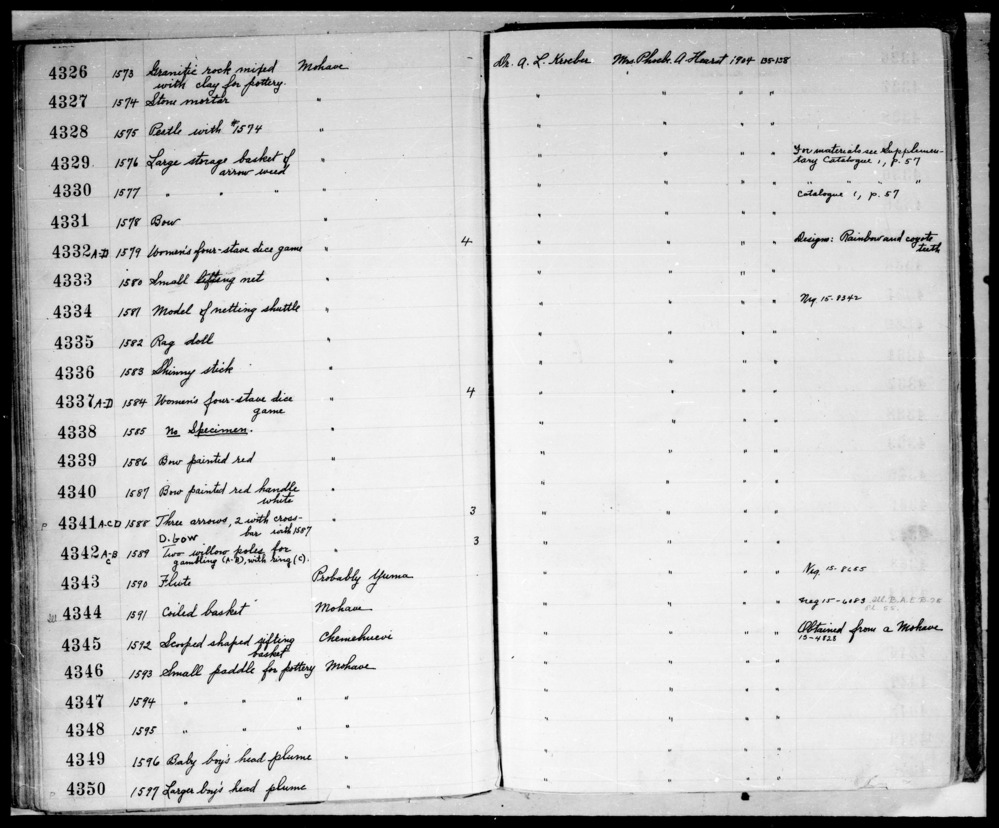 4326 1573 Granitic rock mixed Mohave Dr. A. L. Kroeber Mrs. Phoeb. A Hearst 1904 135-138
with clay for pottery.
4327 1574 Stone mortar " " " " "
4328 1575 Pestle with #1574 " " " " "
4329 1576 Large storage basket of " " " " " For materials see Supplemen-
arrow weed tary Catalogue 1, p. 57
4330 1577 " " " " " " " " " " " "
Catalogue 1, p. 57
4331 1578 Bow " " " " "
4332 A-D 1579 Women's four-stave dice game " 4 " " " " Designs: Rainbow and coyote
teeth
4333 1580 Small lifting net " " " " "
4334 1581 Model of netting shuttle " " " " " Neg. 15-8342
4335 1582 Rag doll " " " " "
4336 1583 Shinny stick " " " " "
4337 A-D 1584 Women's four-stave dice " 4 " " " "
game
4338 1585 No Specimen. " " " " "
4339 1586 Bow painted red " " " " "
4340 1587 Bow painted red handle " " " " "
white
P 4341 A.C.D 1588 Three arrows, 2 with cross- " 3 " " " "
D. bow bar with 1587
4342 A-B 1589 Two willow poles for " 3 " " " "
C gambling (A-B), with ring (C).
4343 1590 Flute Probably Yuma " " " " Neg. 15-8655
Ill 4344 1591 Coiled basket Mohave " " " " neg 15-6083 Ill. B.A.E. B.78
Pl. 55.
4345 1592 Scooped shaped sifting Chemehuevi " " " " Obtained from a Mohave
basket 15-4823
4346 1593 Small paddle for pottery Mohave " " " "
4347 1594 " " " " " " " "
4348 1595 " " " " " " " "
4349 1596 Baby boy's head plume " " " " "
4350 1597 Larger boy's head plume " " " " "